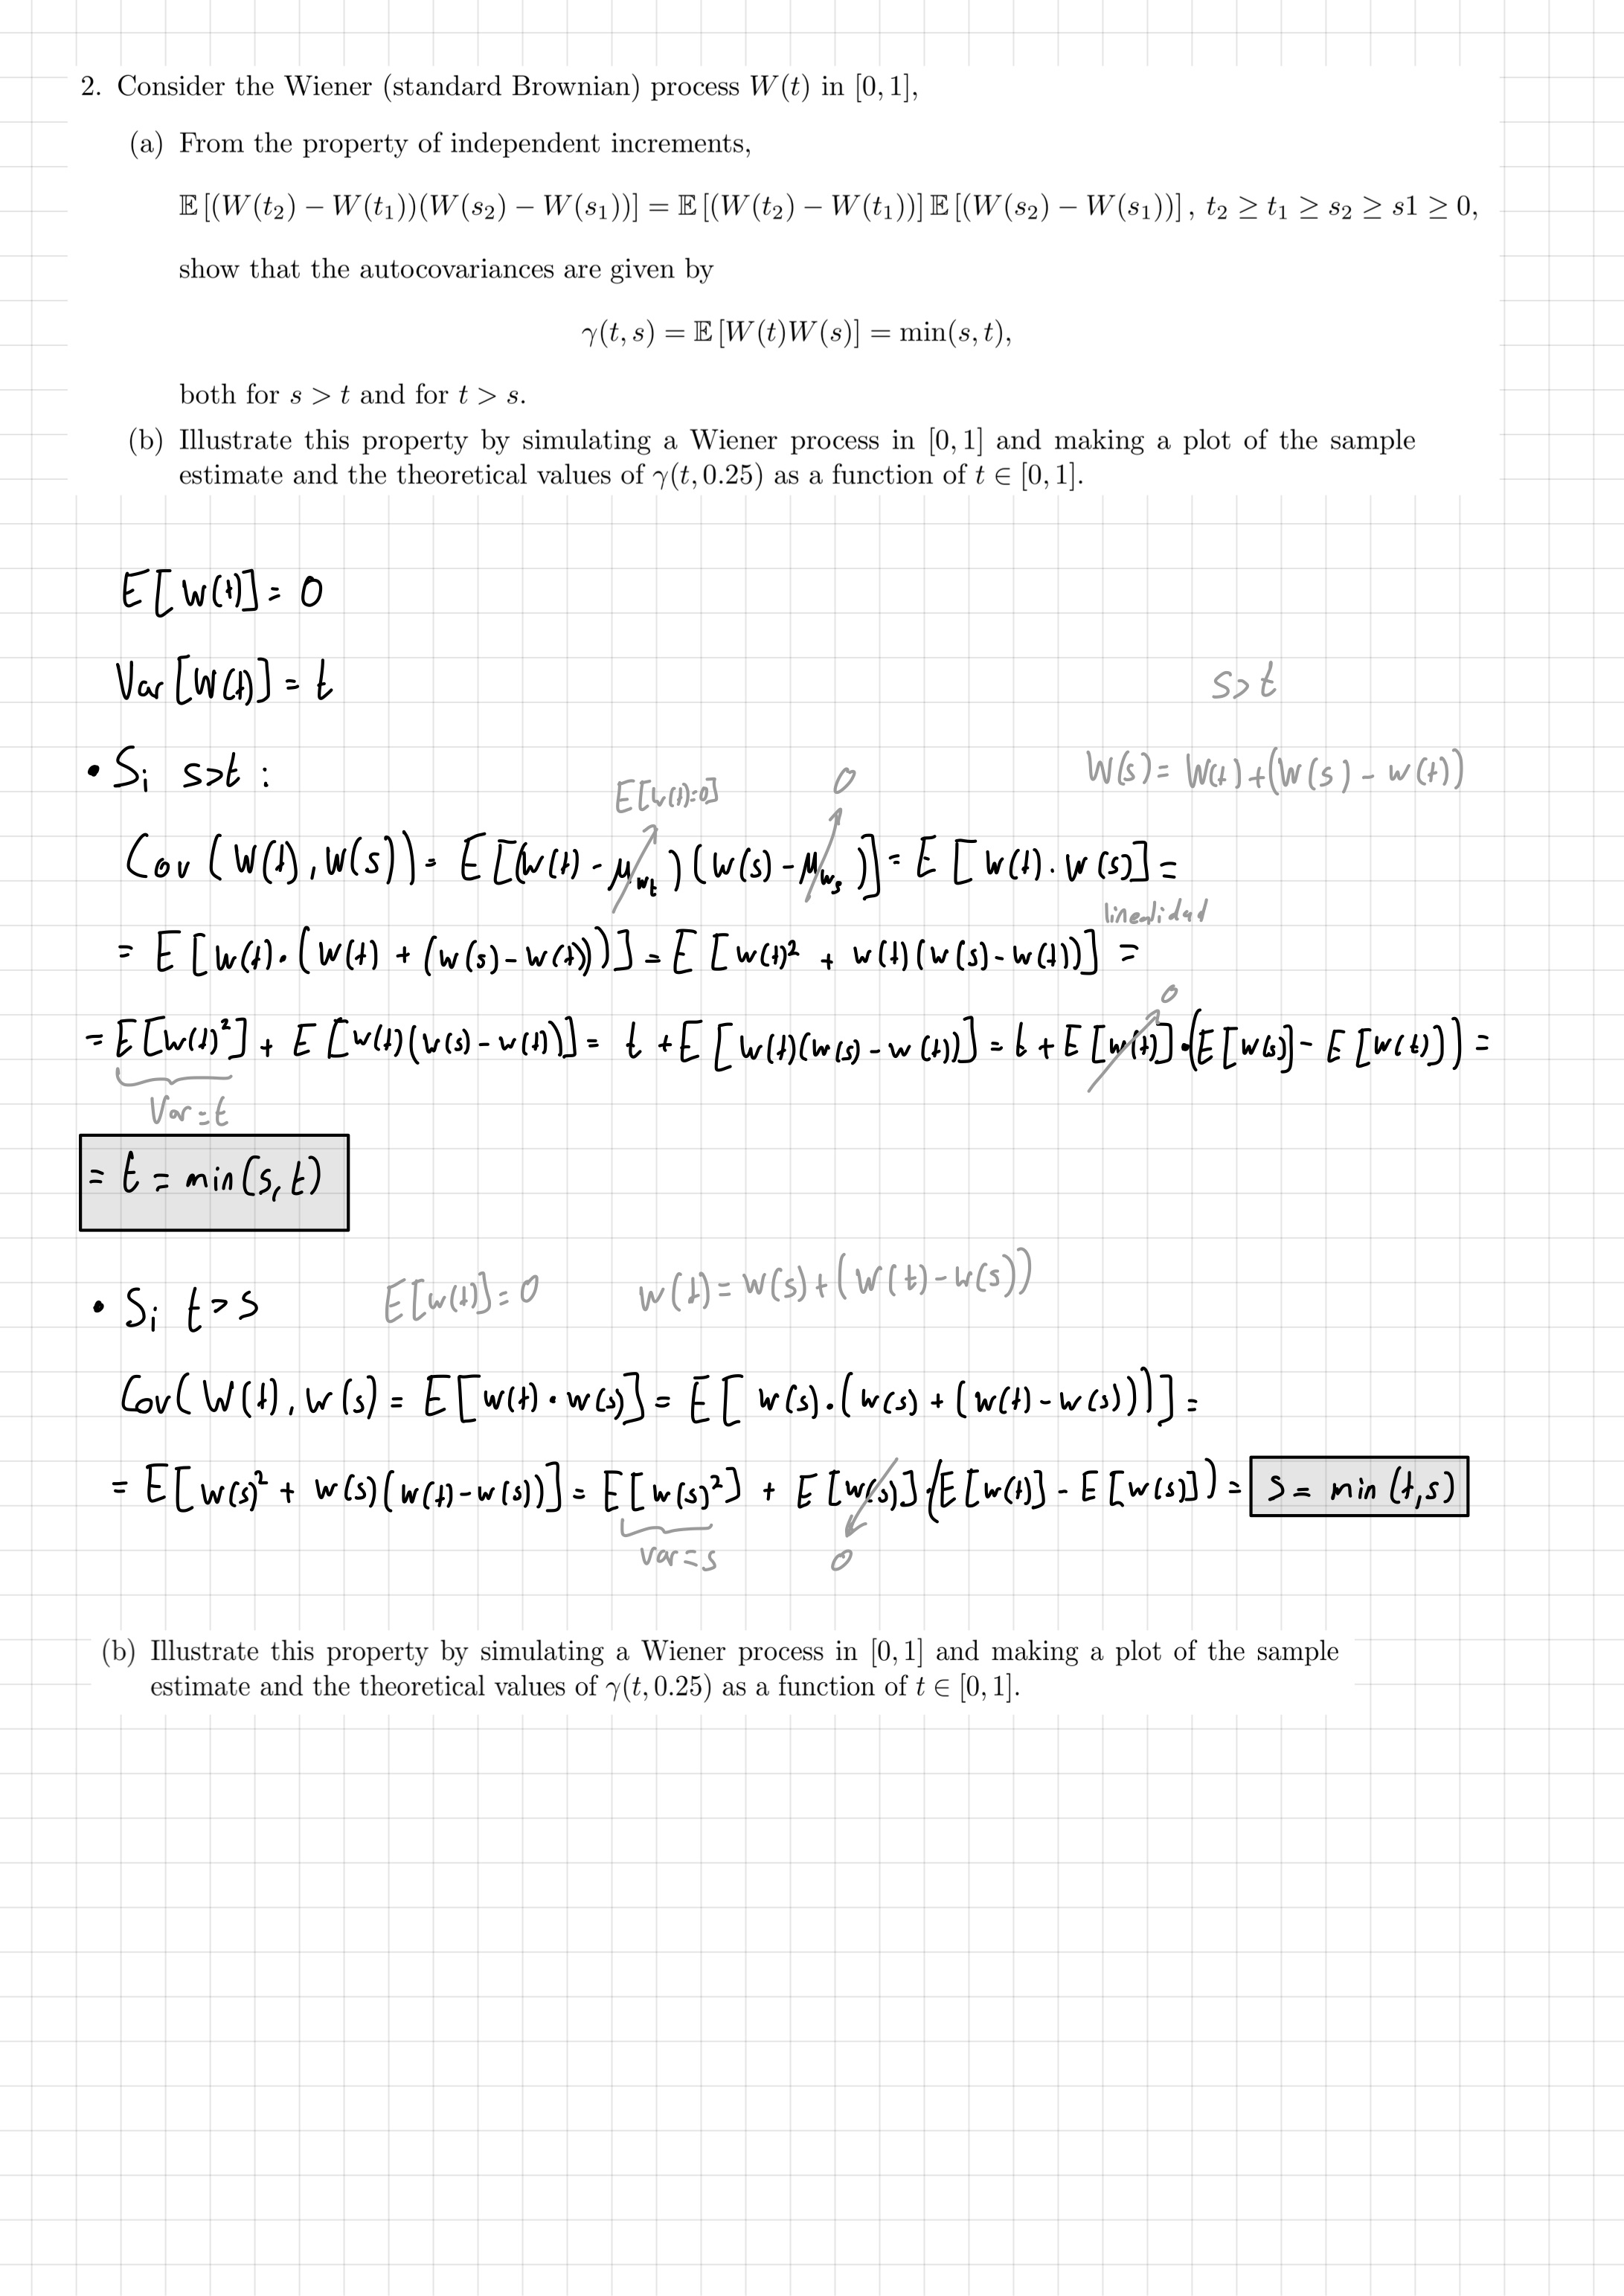 2. Consider the Wiener (standard Brownian) process W(t) in [0, 1],
(a) From the property of independent increments,
𝔼 [(W(t₂) − W(t₁))(W(s₂) − W(s₁))] = 𝔼 [(W(t₂) − W(t₁))] 𝔼 [(W(s₂) − W(s₁))] , t₂ ≥ t₁ ≥ s₂ ≥ s1 ≥ 0,
show that the autocovariances are given by
γ(t, s) = 𝔼 [W(t)W(s)] = min(s, t),
both for s > t and for t > s.
(b) Illustrate this property by simulating a Wiener process in [0, 1] and making a plot of the sample
estimate and the theoretical values of γ(t, 0.25) as a function of t ∈ [0, 1].
E[W(t)] = 0
Var[W(t)] = t
s>t
• Si s>t :
W(s) = W(t) + (W(s) − W(t))
E[W(t)=0]
0
Cov (W(t), W(s)) = E[(W(t) - μ_Wt)(W(s) - μ_Ws)] = E[W(t) · W(s)] =
linealidad
= E[W(t)·(W(t) + (W(s) - W(t)))] = E[W(t)² + W(t)(W(s) - W(t))] =
0
= E[W(t)²] + E[W(t)(W(s) - W(t))] = t + E[W(t)(W(s) - W(t))] = t + E[W(t)]·(E[W(s)] - E[W(t)]) =
Var = t
= t = min(s, t)
• Si t > s
E[W(t)] = 0
W(t) = W(s) + (W(t) - W(s))
Cov(W(t), W(s) = E[W(t) · W(s)] = E[W(s)·(W(s) + (W(t) - W(s)))] =
= E[W(s)² + W(s)(W(t) - W(s))] = E[W(s)²] + E[W(s)]·(E[W(t)] - E[W(s)]) = s = min(t,s)
Var = s
0
(b) Illustrate this property by simulating a Wiener process in [0, 1] and making a plot of the sample
estimate and the theoretical values of γ(t, 0.25) as a function of t ∈ [0, 1].